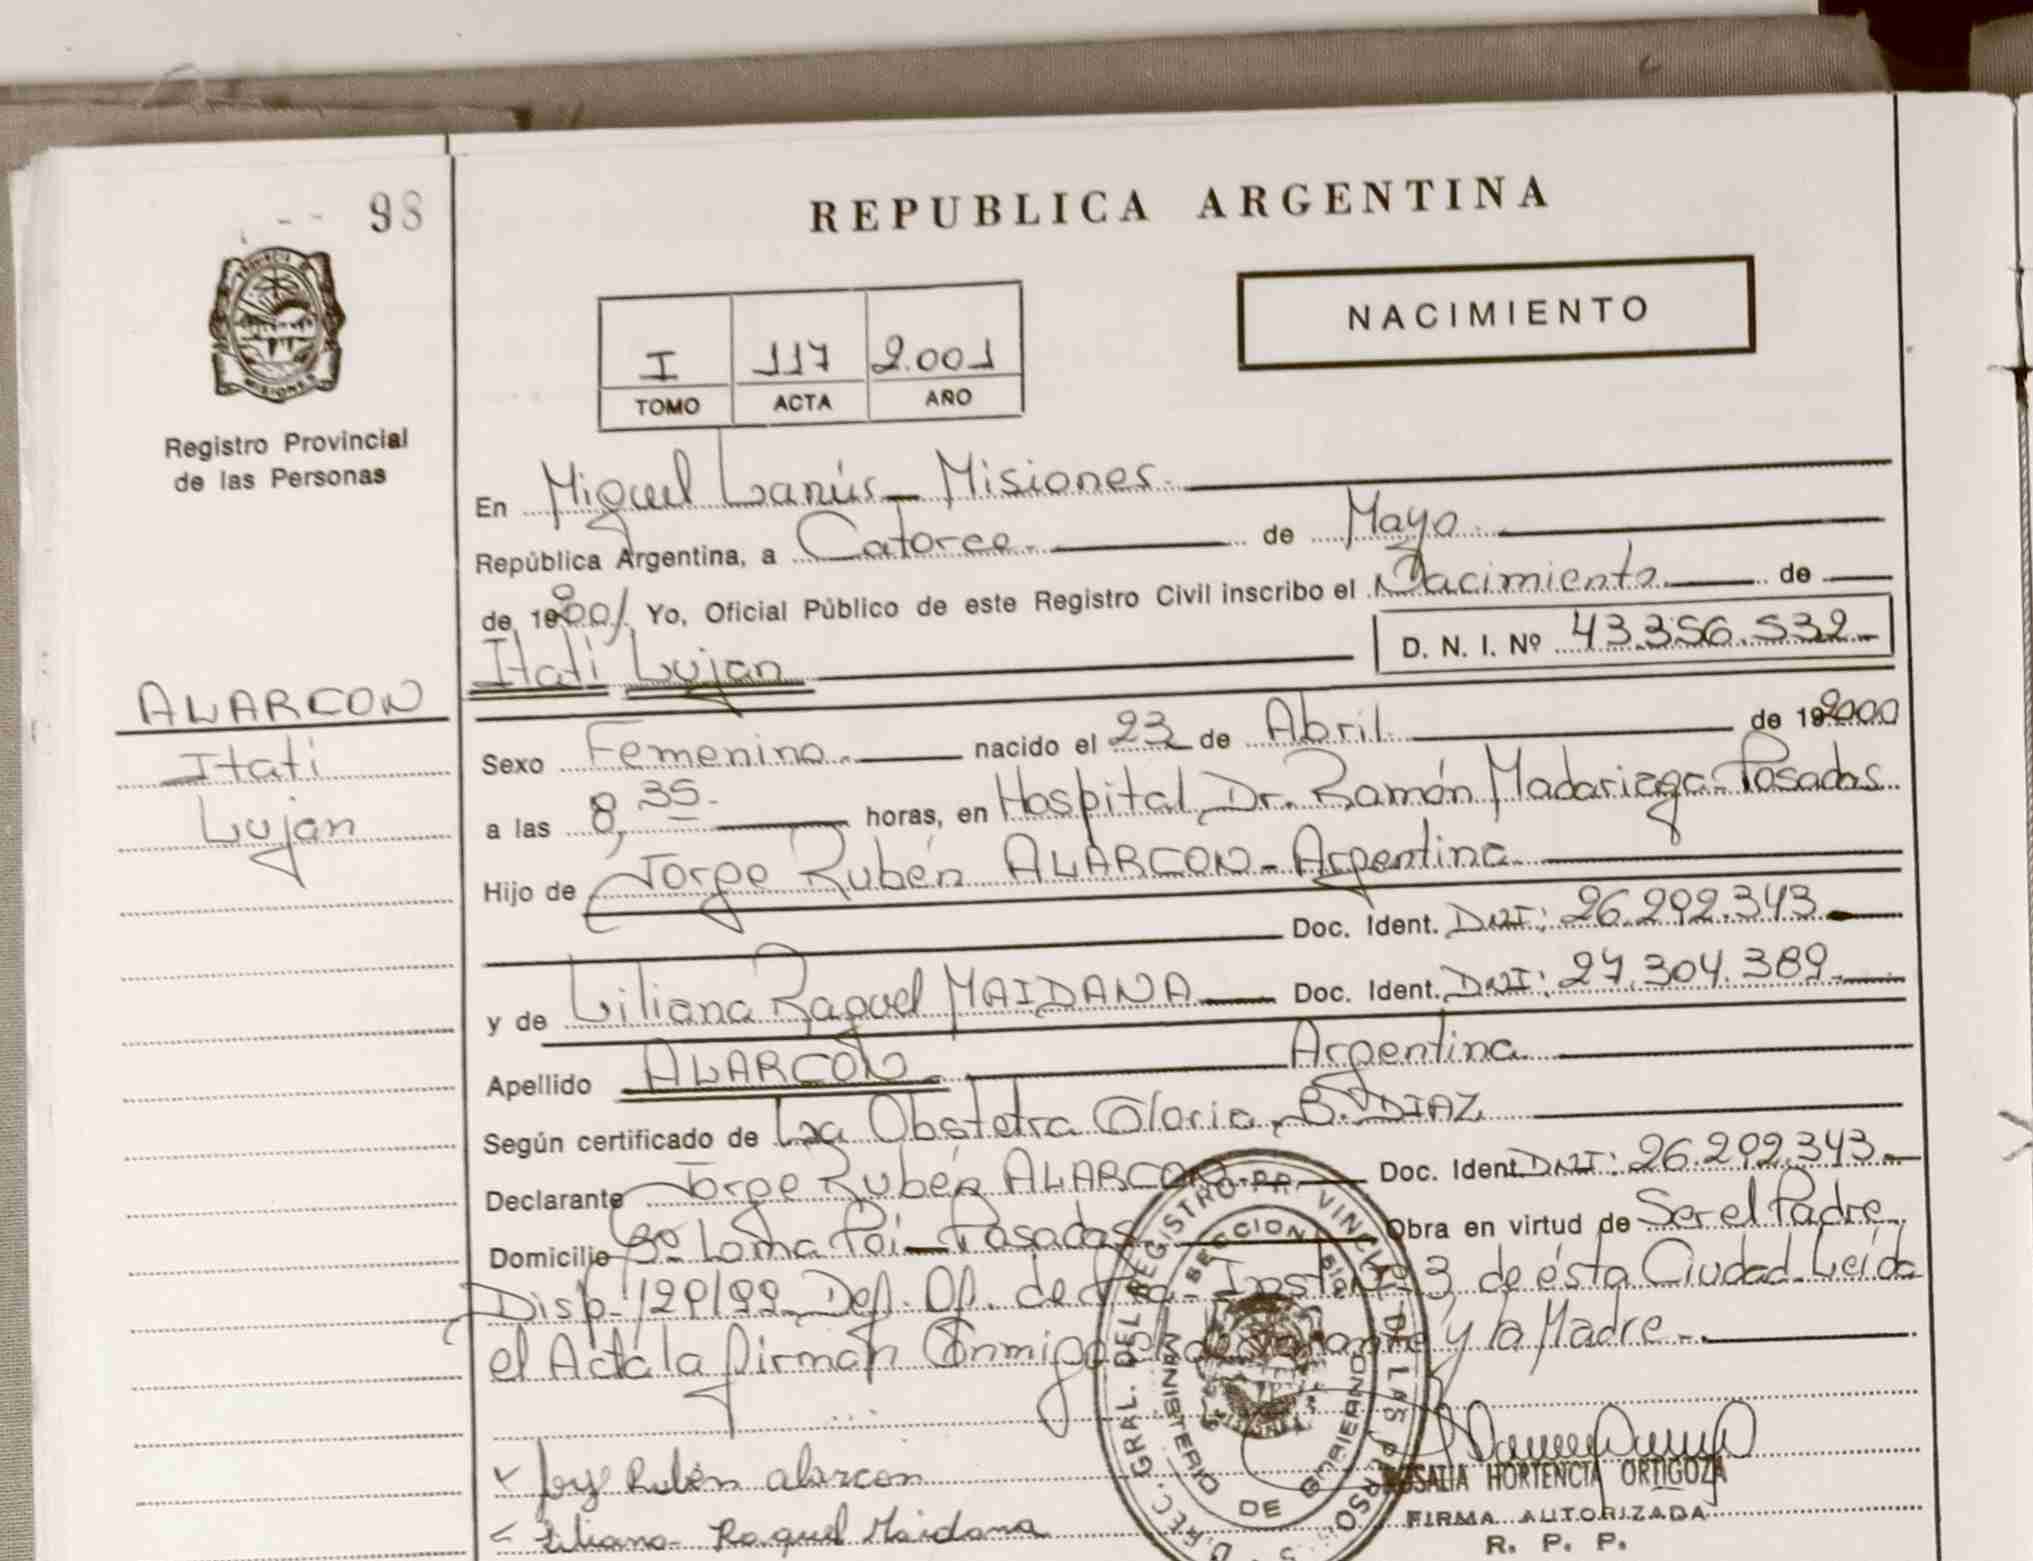 98
REPUBLICA ARGENTINA
NACIMIENTO
I 117 2.001
TOMO ACTA AÑO
PROVINCIA DE
MISIONES
Registro Provincial
de las Personas
En Miguel Lanús - Misiones.
República Argentina, a Catorce. de Mayo.
de 2001. Yo, Oficial Público de este Registro Civil inscribo el Nacimiento de
Itati Lujan D. N. I. Nº 43.356.532
ALARCON
Itati
Lujan
Sexo Femenino. nacido el 23 de Abril de 2000
a las 8,35. horas, en Hospital Dr. Ramón Madariaga. Posadas.
Hijo de Jorge Rubén ALARCON - Argentina
Doc. Ident. DNI: 26.292.343
y de Liliana Raquel MAIDANA Doc. Ident. DNI: 27.304.389
Apellido ALARCON Argentina
Según certificado de La Obstetra Gloria B. DIAZ
Declarante Jorge Rubén ALARCON Doc. Ident. DNI: 26.292.343
Domicilio Bº Loma Poi - Posadas Obra en virtud de Ser el Padre
Disp. Def. Of. de Inst. Nº 3 de ésta Ciudad. Leída
el Acta la firman Conmigo el declarante y la Madre.
Jorge Rubén alarcon
Liliana Raquel Maidana
ROSALIA HORTENCIA ORTIGOZA
FIRMA AUTORIZADA
R. P. P.
GRAL. DEL REGISTRO PROVINCIAL DE LAS PERSO
MINISTERIO DE GOBIERNO